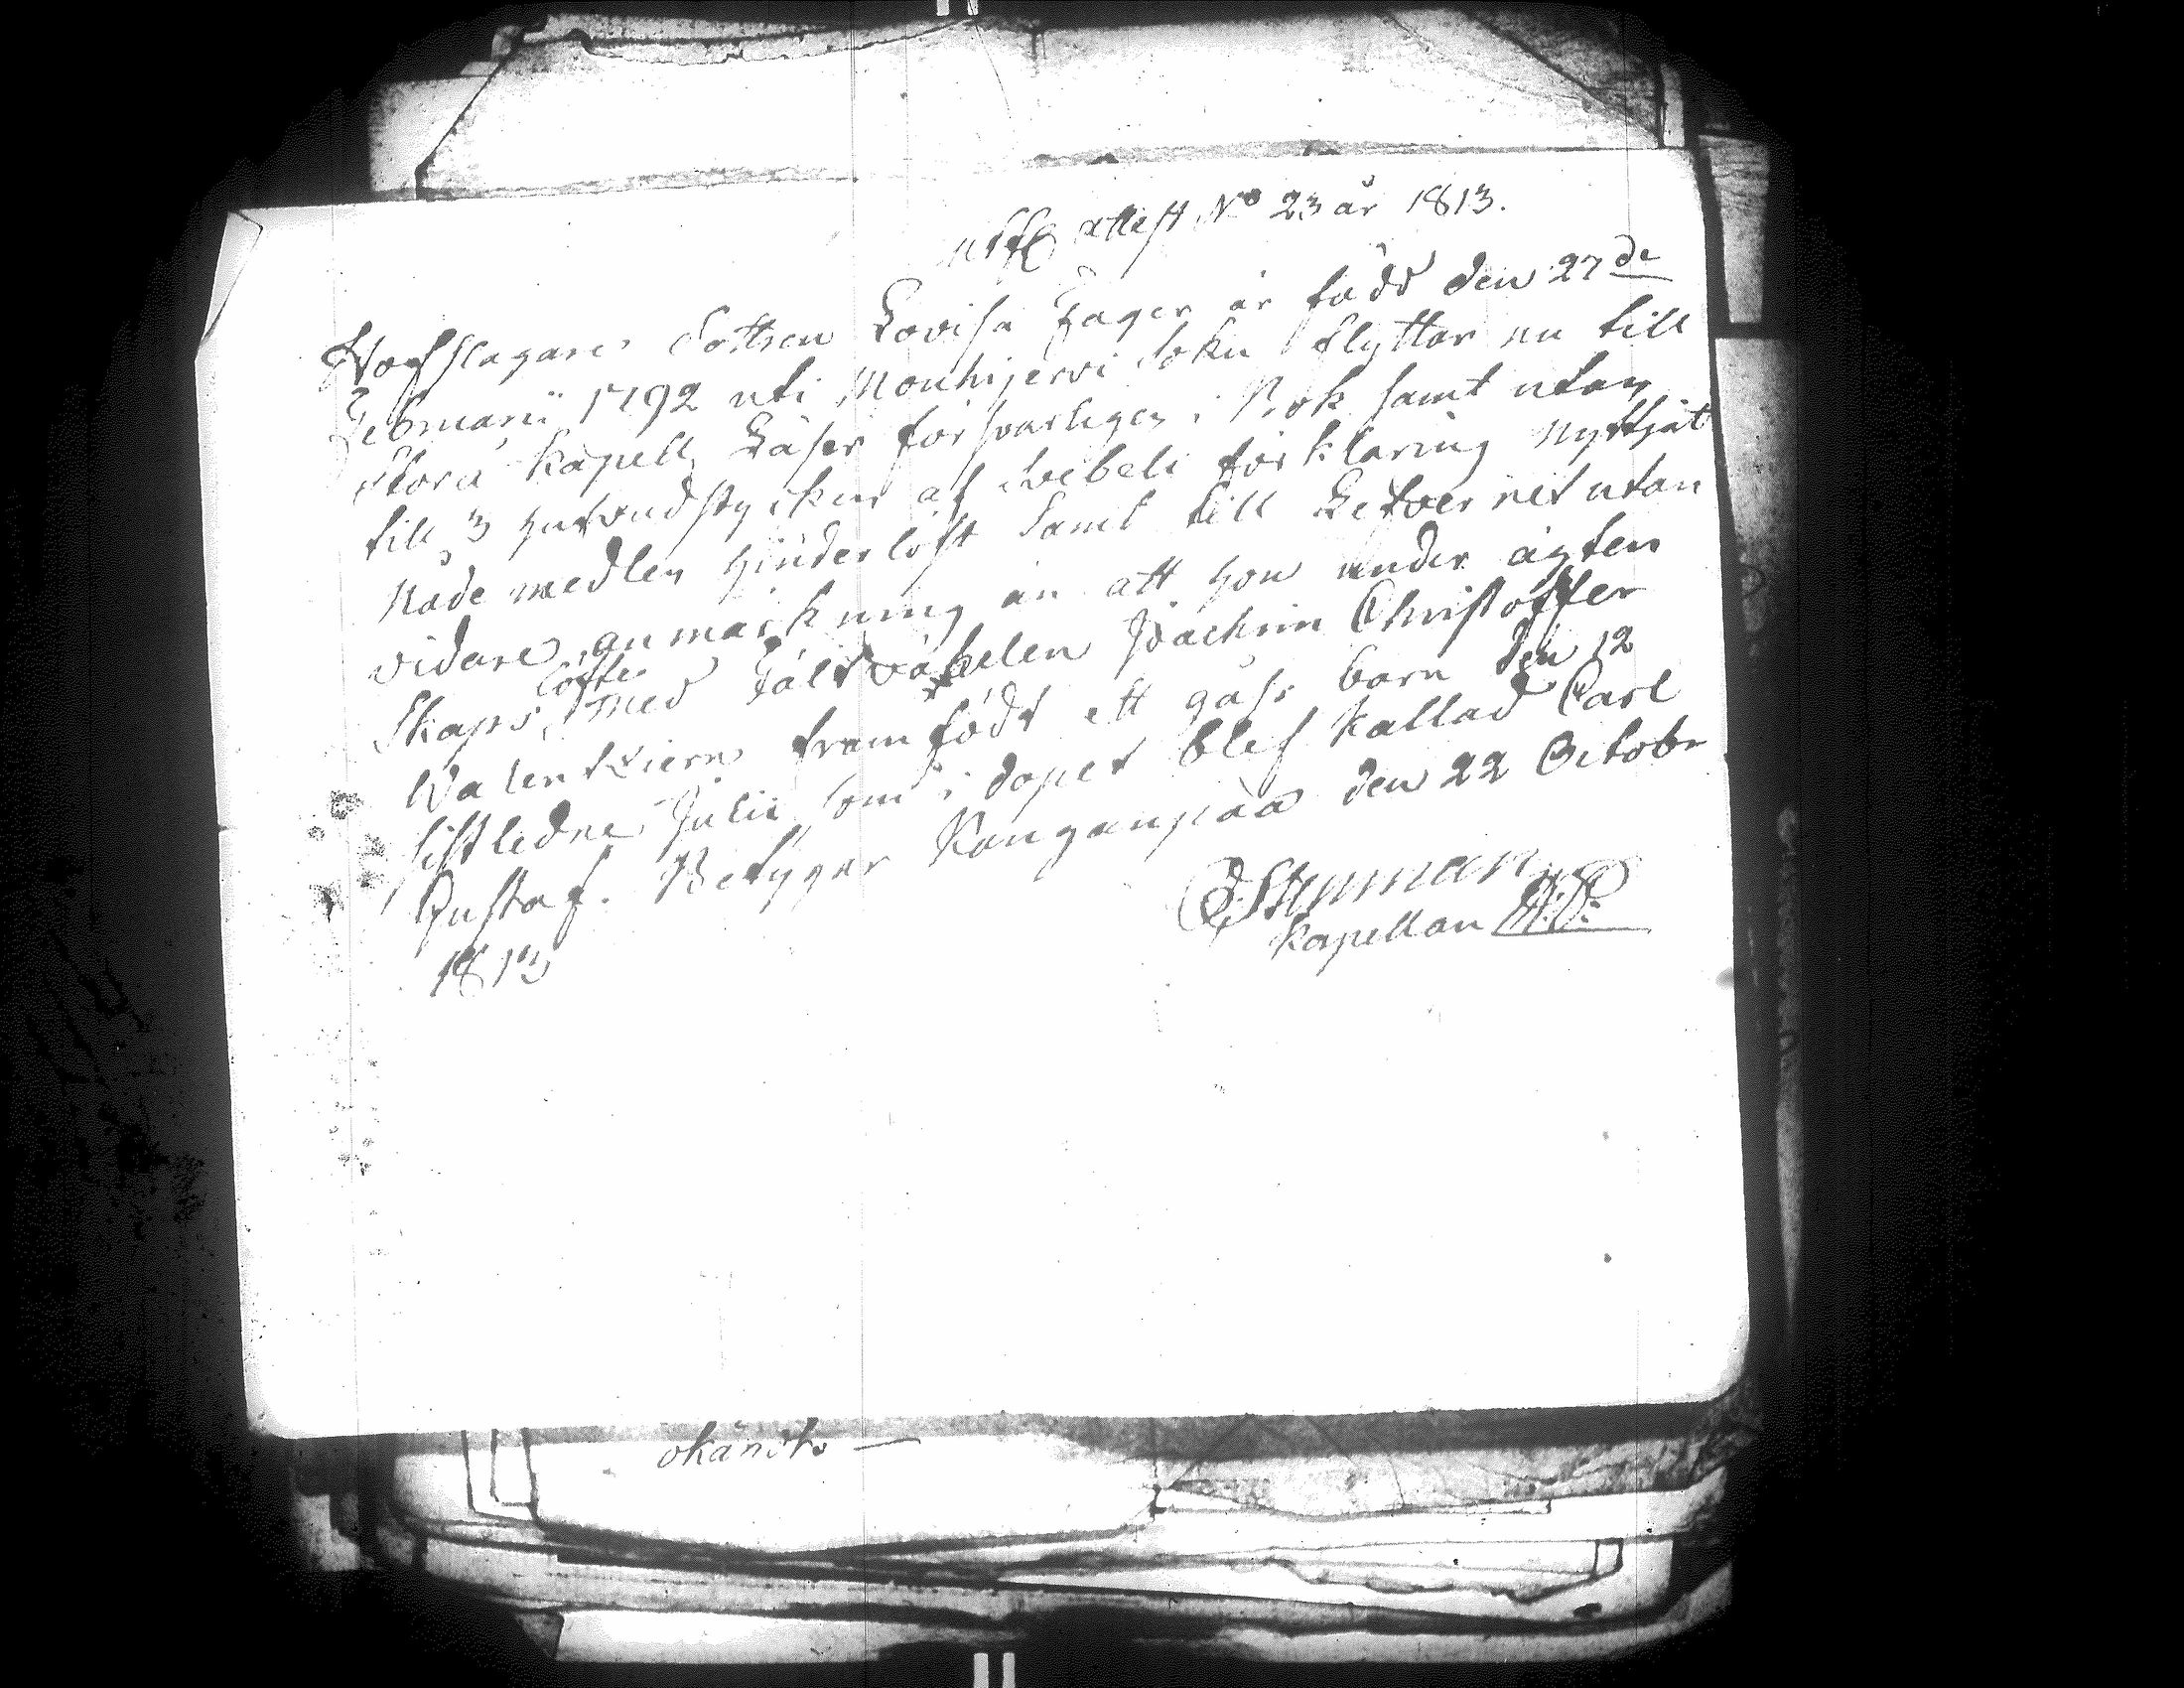 attest No 23 år 1813.
Hofslagare dottren Lovisa Fager är född den 27de
Februarii 1792 uti Mouhijervi Sokn flyttar nu till
Storå Kapell, Läser försvarligen i Bok samt utan
till 3 hufvudstycken af Svebelii förklaring nyttjat
Nåde medlen hinderlöst samt till Lefvernet utan
vidare anmärkning än att hon under ägten
skaps löfte med Fältväbelen Joachim Christoffer
Walentziern framfödt ett gåsse barn den 12
sistledne Julii som i dopet blef kallad Carl
Gustaf. Betygar Kanganpää den 22 Octobr
1813
Stenman
Kapellan
okändt —